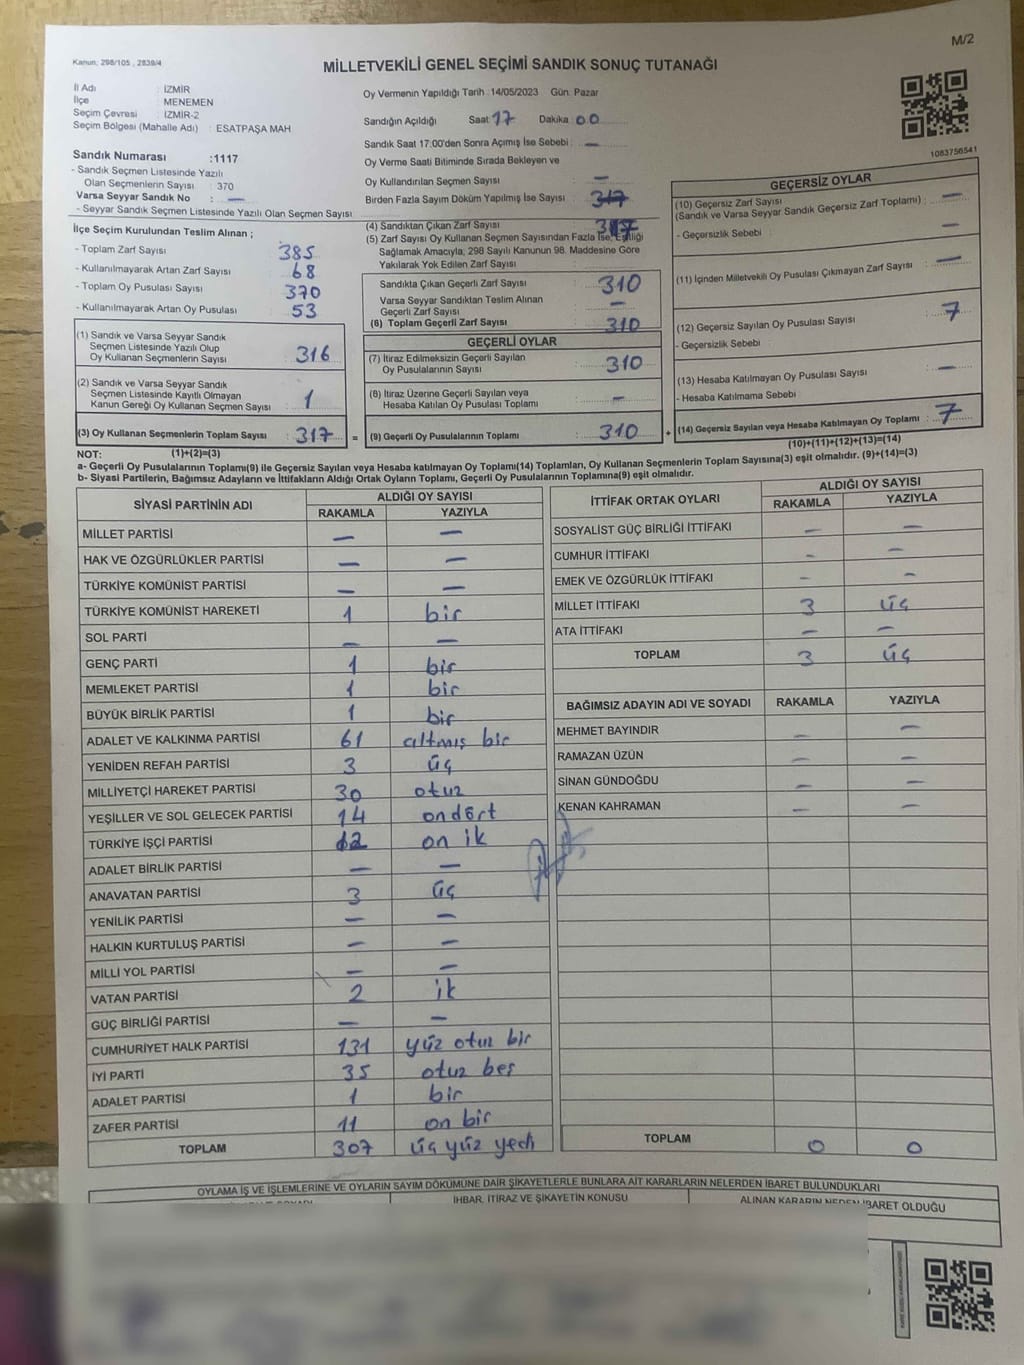 M/2
Kanun: 298/105 , 2839/4
MİLLETVEKİLİ GENEL SEÇİMİ SANDIK SONUÇ TUTANAĞI
İl Adı : İZMİR
İlçe : MENEMEN
Seçim Çevresi : İZMİR-2
Seçim Bölgesi (Mahalle Adı) : ESATPAŞA MAH
Oy Vermenin Yapıldığı Tarih : 14/05/2023 Gün: Pazar
Sandığın Açıldığı Saat 17 Dakika 00
Sandık Saat 17:00'den Sonra Açımış İse Sebebi : —
Oy Verme Saati Bitiminde Sırada Bekleyen ve
Oy Kullandırılan Seçmen Sayısı —
Birden Fazla Sayım Döküm Yapılmış İse Sayısı : 317
1083756541
Sandık Numarası :1117
- Sandık Seçmen Listesinde Yazılı
Olan Seçmenlerin Sayısı : 370
Varsa Seyyar Sandık No : —
- Seyyar Sandık Seçmen Listesinde Yazılı Olan Seçmen Sayısı
İlçe Seçim Kurulundan Teslim Alınan ;
- Toplam Zarf Sayısı : 385
- Kullanılmayarak Artan Zarf Sayısı : 68
- Toplam Oy Pusulası Sayısı : 370
- Kullanılmayarak Artan Oy Pusulası : 53
(1) Sandık ve Varsa Seyyar Sandık
Seçmen Listesinde Yazılı Olup
Oy Kullanan Seçmenlerin Sayısı : 316
(2) Sandık ve Varsa Seyyar Sandık
Seçmen Listesinde Kayıtlı Olmayan
Kanun Gereği Oy Kullanan Seçmen Sayısı : 1
(3) Oy Kullanan Seçmenlerin Toplam Sayısı : 317 =
(1)+(2)=(3)
(4) Sandıktan Çıkan Zarf Sayısı : 317
(5) Zarf Sayısı Oy Kullanan Seçmen Sayısından Fazla İse, Eşitliği
Sağlamak Amacıyla, 298 Sayılı Kanunun 98. Maddesine Göre
Yakılarak Yok Edilen Zarf Sayısı :
Sandıkta Çıkan Geçerli Zarf Sayısı : 310
Varsa Seyyar Sandıktan Teslim Alınan
Geçerli Zarf Sayısı : —
(6) Toplam Geçerli Zarf Sayısı : 310
GEÇERLİ OYLAR
(7) İtiraz Edilmeksizin Geçerli Sayılan
Oy Pusulalarının Sayısı : 310
(8) İtiraz Üzerine Geçerli Sayılan veya
Hesaba Katılan Oy Pusulası Toplamı : —
(9) Geçerli Oy Pusulalarının Toplamı : 310 +
GEÇERSİZ OYLAR
(10) Geçersiz Zarf Sayısı
(Sandık ve Varsa Seyyar Sandık Geçersiz Zarf Toplamı) : —
- Geçersizlik Sebebi : —
(11) İçinden Milletvekili Oy Pusulası Çıkmayan Zarf Sayısı : —
(12) Geçersiz Sayılan Oy Pusulası Sayısı : 7
- Geçersizlik Sebebi :
(13) Hesaba Katılmayan Oy Pusulası Sayısı : —
- Hesaba Katılmama Sebebi
(14) Geçersiz Sayılan veya Hesaba Katılmayan Oy Toplamı : 7
(10)+(11)+(12)+(13)=(14)
NOT:
a- Geçerli Oy Pusulalarının Toplamı(9) ile Geçersiz Sayılan veya Hesaba katılmayan Oy Toplamı(14) Toplamları, Oy Kullanan Seçmenlerin Toplam Sayısına(3) eşit olmalıdır. (9)+(14)=(3)
b- Siyasi Partilerin, Bağımsız Adayların ve İttifakların Aldığı Ortak Oyların Toplamı, Geçerli Oy Pusulalarının Toplamına(9) eşit olmalıdır.
SİYASİ PARTİNİN ADI ALDIĞI OY SAYISI
RAKAMLA YAZIYLA
MİLLET PARTİSİ — —
HAK VE ÖZGÜRLÜKLER PARTİSİ — —
TÜRKİYE KOMÜNİST PARTİSİ — —
TÜRKİYE KOMÜNİST HAREKETİ 1 bir
SOL PARTİ — —
GENÇ PARTİ 1 bir
MEMLEKET PARTİSİ 1 bir
BÜYÜK BİRLİK PARTİSİ 1 bir
ADALET VE KALKINMA PARTİSİ 61 altmış bir
YENİDEN REFAH PARTİSİ 3 üç
MİLLİYETÇİ HAREKET PARTİSİ 30 otuz
YEŞİLLER VE SOL GELECEK PARTİSİ 14 ondört
TÜRKİYE İŞÇİ PARTİSİ 12 on ik
ADALET BİRLİK PARTİSİ — —
ANAVATAN PARTİSİ 3 üç
YENİLİK PARTİSİ — —
HALKIN KURTULUŞ PARTİSİ — —
MİLLİ YOL PARTİSİ — —
VATAN PARTİSİ 2 ik
GÜÇ BİRLİĞİ PARTİSİ — —
CUMHURİYET HALK PARTİSİ 131 yüz otuz bir
İYİ PARTİ 35 otuz beş
ADALET PARTİSİ 1 bir
ZAFER PARTİSİ 11 on bir
TOPLAM 307 üç yüz yedi
İTTİFAK ORTAK OYLARI ALDIĞI OY SAYISI
RAKAMLA YAZIYLA
SOSYALİST GÜÇ BİRLİĞİ İTTİFAKI — —
CUMHUR İTTİFAKI — —
EMEK VE ÖZGÜRLÜK İTTİFAKI — —
MİLLET İTTİFAKI 3 üç
ATA İTTİFAKI — —
TOPLAM 3 üç
BAĞIMSIZ ADAYIN ADI VE SOYADI RAKAMLA YAZIYLA
MEHMET BAYINDIR — —
RAMAZAN ÜZÜN — —
SİNAN GÜNDOĞDU — —
KENAN KAHRAMAN — —
TOPLAM 0 0
OYLAMA İŞ VE İŞLEMLERİNE VE OYLARIN SAYIM DÖKÜMÜNE DAİR ŞİKAYETLERLE BUNLARA AİT KARARLARIN NELERDEN İBARET BULUNDUKLARI
İHBAR, İTİRAZ VE ŞİKAYETİN KONUSU
ALINAN KARARIN NEDEN İBARET OLDUĞU